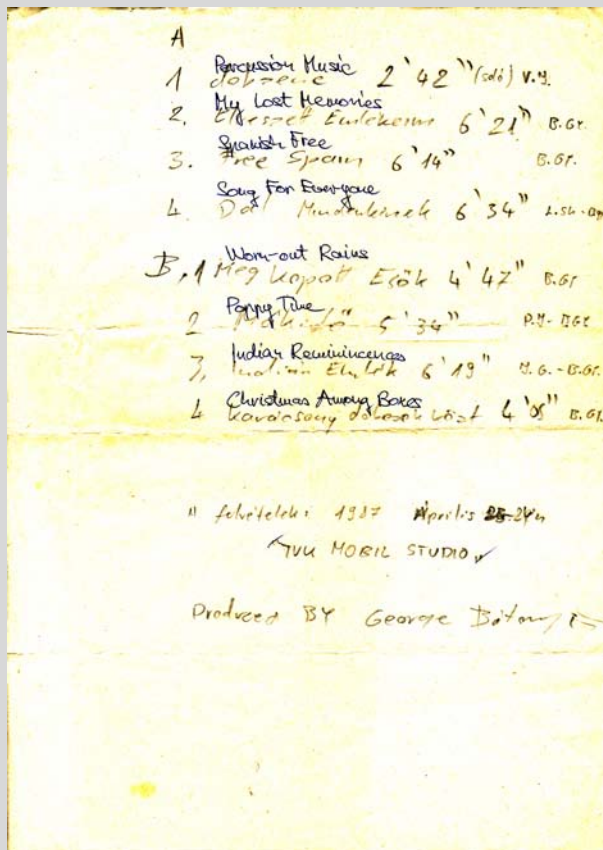 A
Percussion Music
1 dobzene 2'42" (solo) V.J.
My Lost Memories
2. Elveszett Emlékeim 6'21" B.GY.
Spanish Free
3. Free Spain 6'14" B.GY.
Song For Everyone
4. Dal Mindenkinek 6'34"
Worn-out Rains
B, 1 Meg kopott Esők 4'47" B.GY
Poppy Time
2 Mákidő 5'34" P.J- BGY
Indian Reminincenges
3, Indián Emlék 6'19" J.G.-B.GY.
Christmas Among Boxes
4 karácsony dobozok közt 4'05" B.GY.
felvételek: 1987 Április 24n
MOBIL STUDIO
Produced BY George